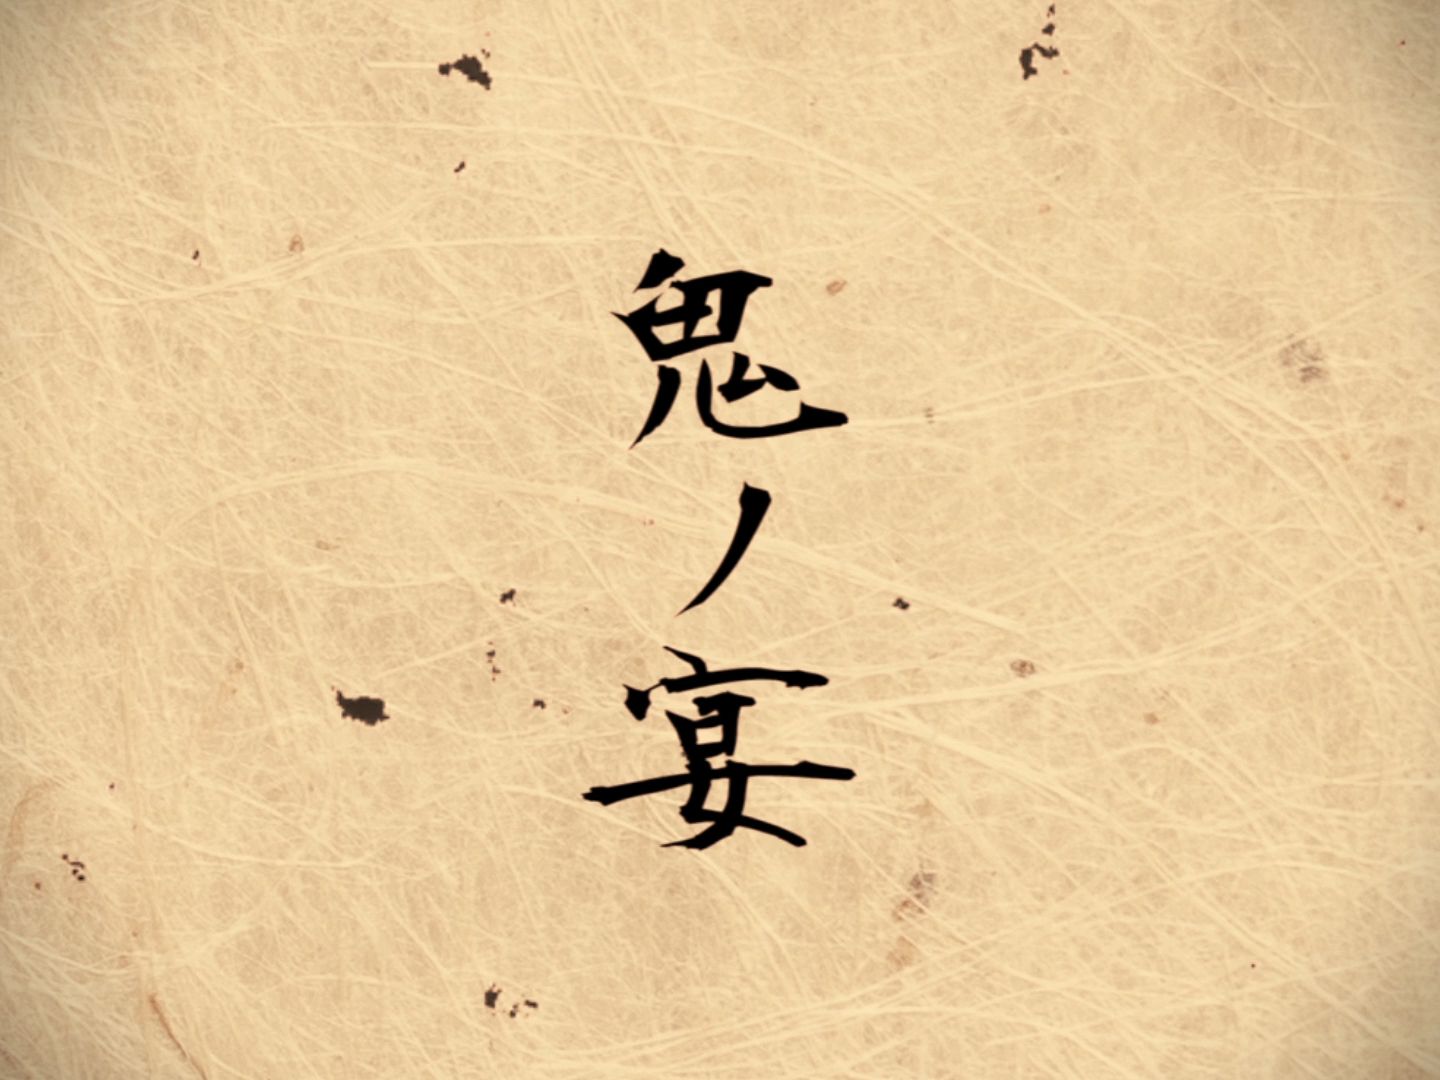 鬼ノ宴